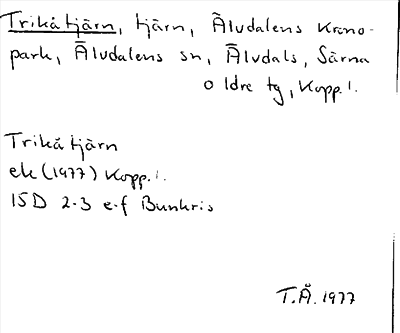 Trikåtjärn, tjärn, Älvdalens Krono-
park, Älvdalens sn, Älvdals, Särna
o Idre tg, Kopp.l.
Trikåtjärn
ek (1977) Kopp.l.
15D 2-3 e-f Bunkris
T.Å. 1977